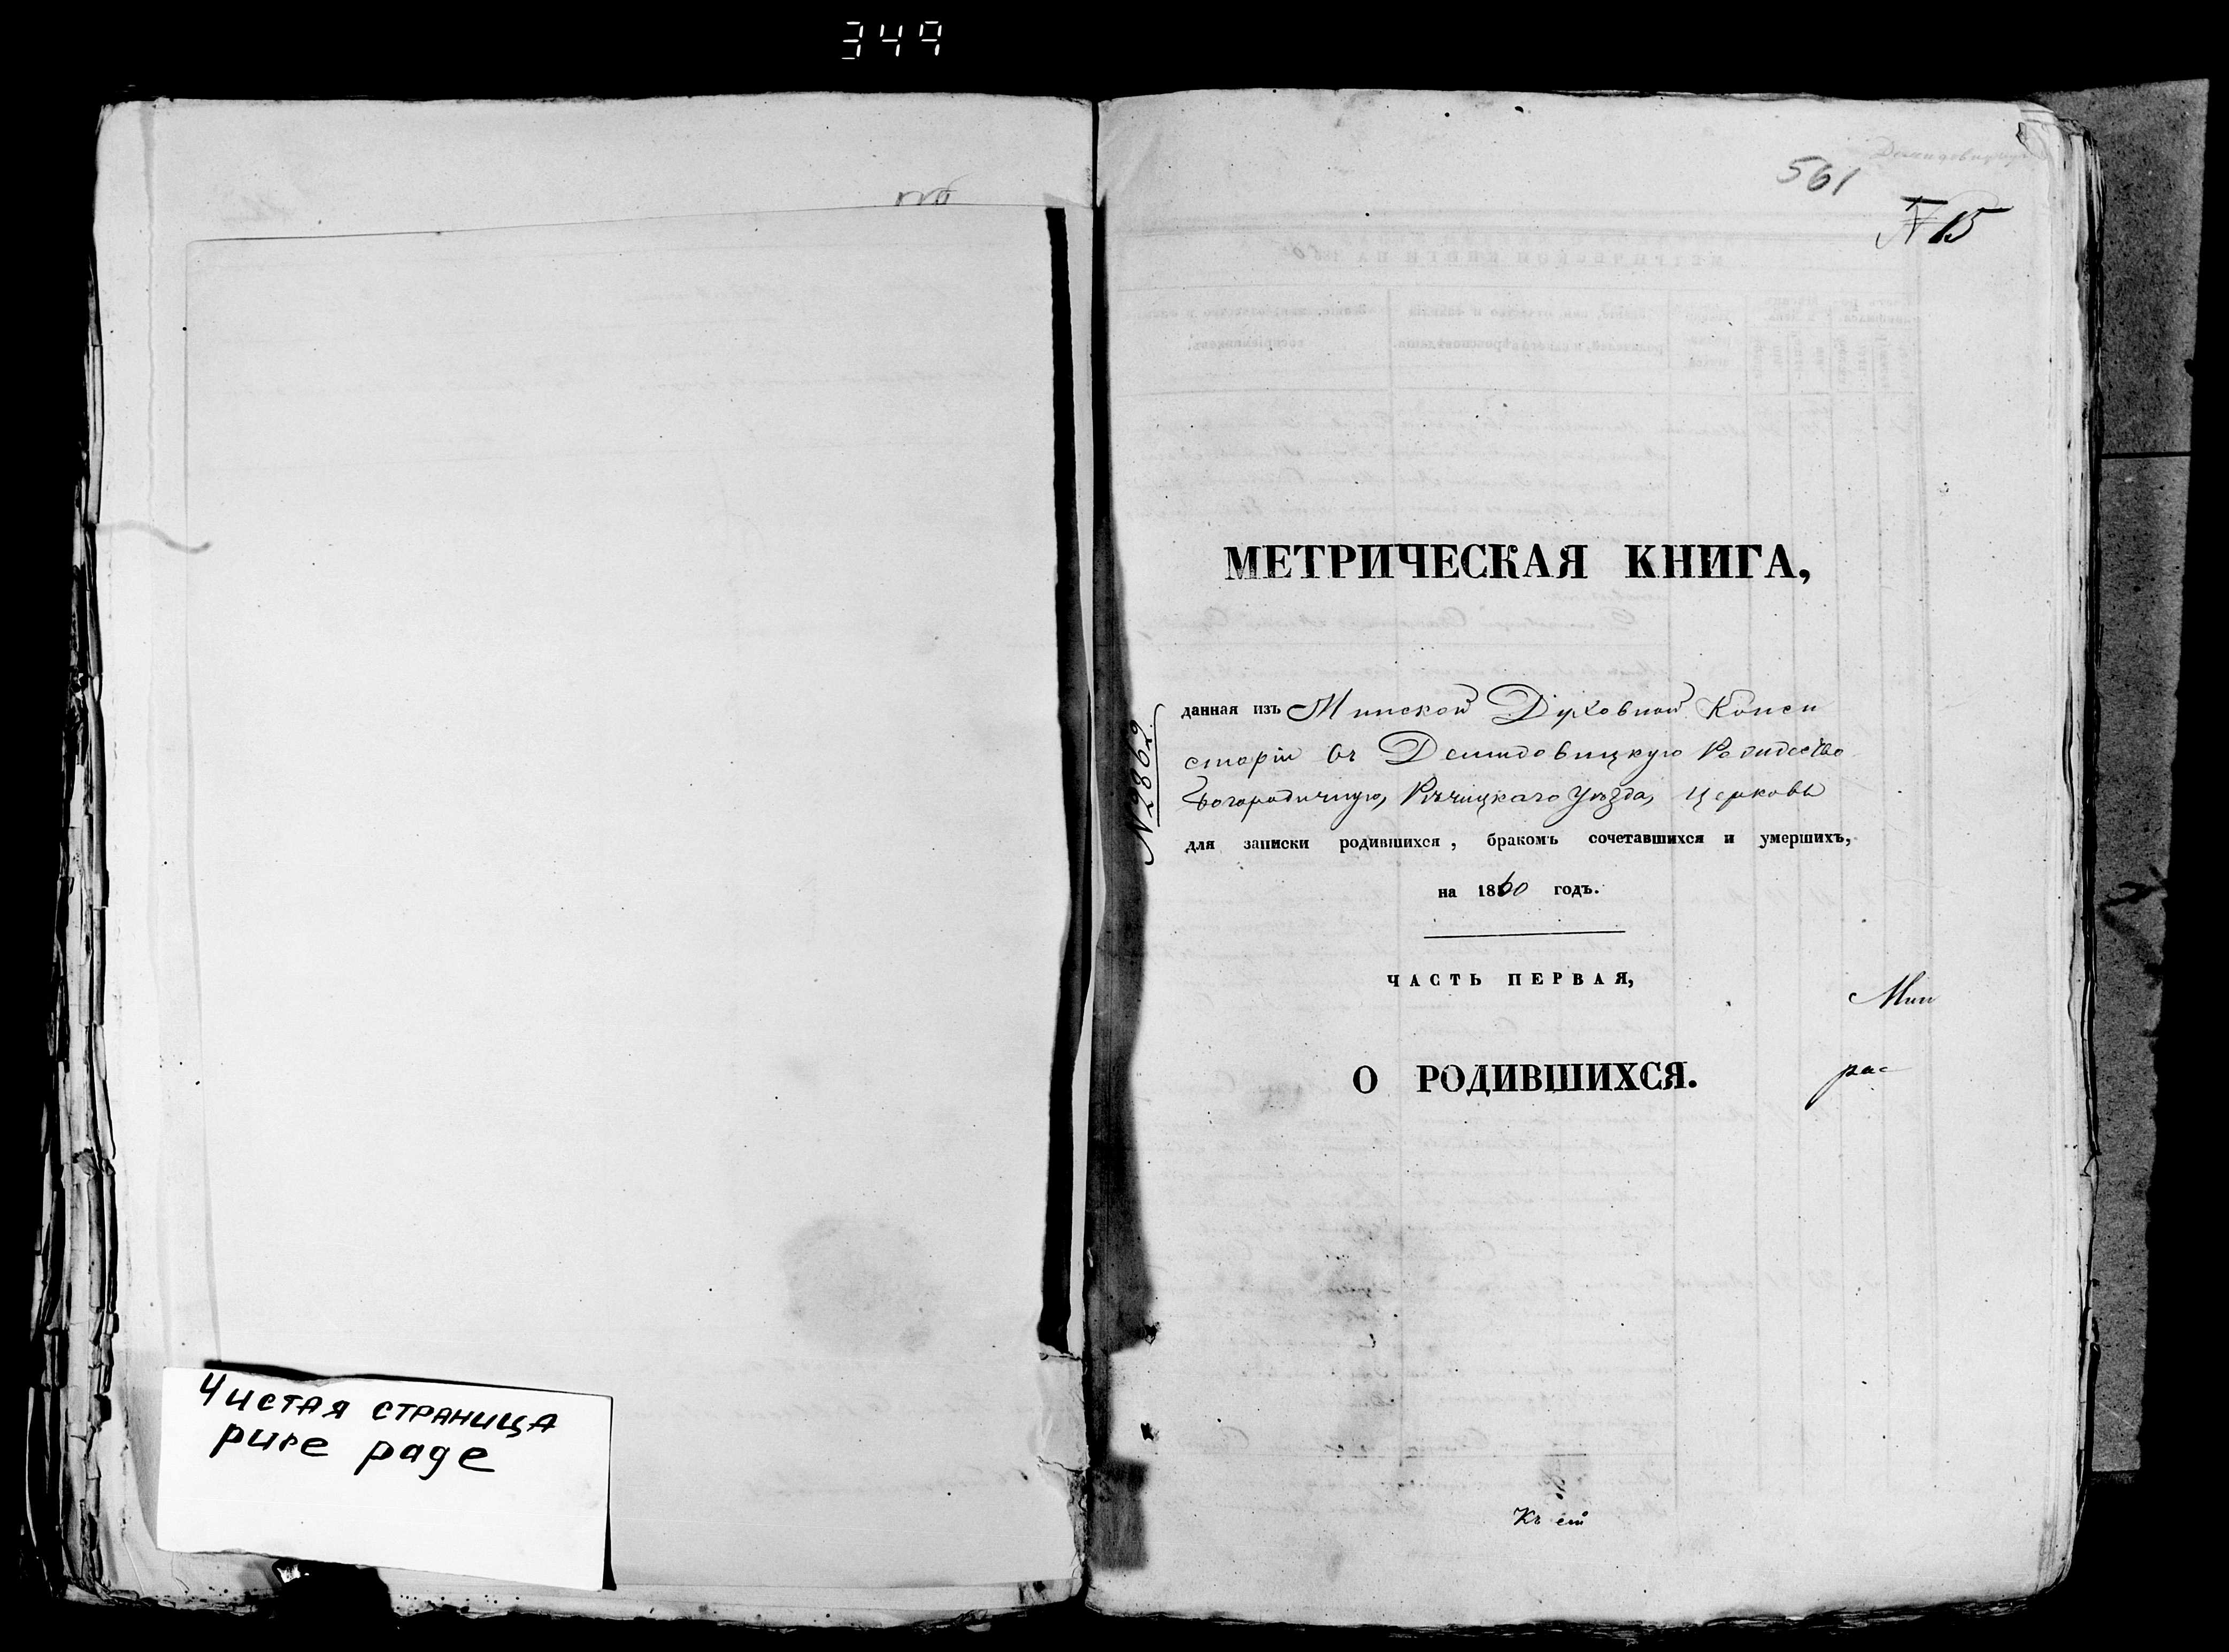 349
Чистая страница
pure page
561
N 15
МЕТРИЧЕСКАЯ КНИГА,
N 2862
данная изъ Минской Духовной Конси
сторіи въ Демидовицкую Рождество
Богородичную, Рѣчицкаго уѣзда, Церковь
для записки родившихся, бракомъ сочетавшихся и умершихъ,
на 1860 годъ.
ЧАСТЬ ПЕРВАЯ,
Мин
О РОДИВШИХСЯ.
рас
Къ сей